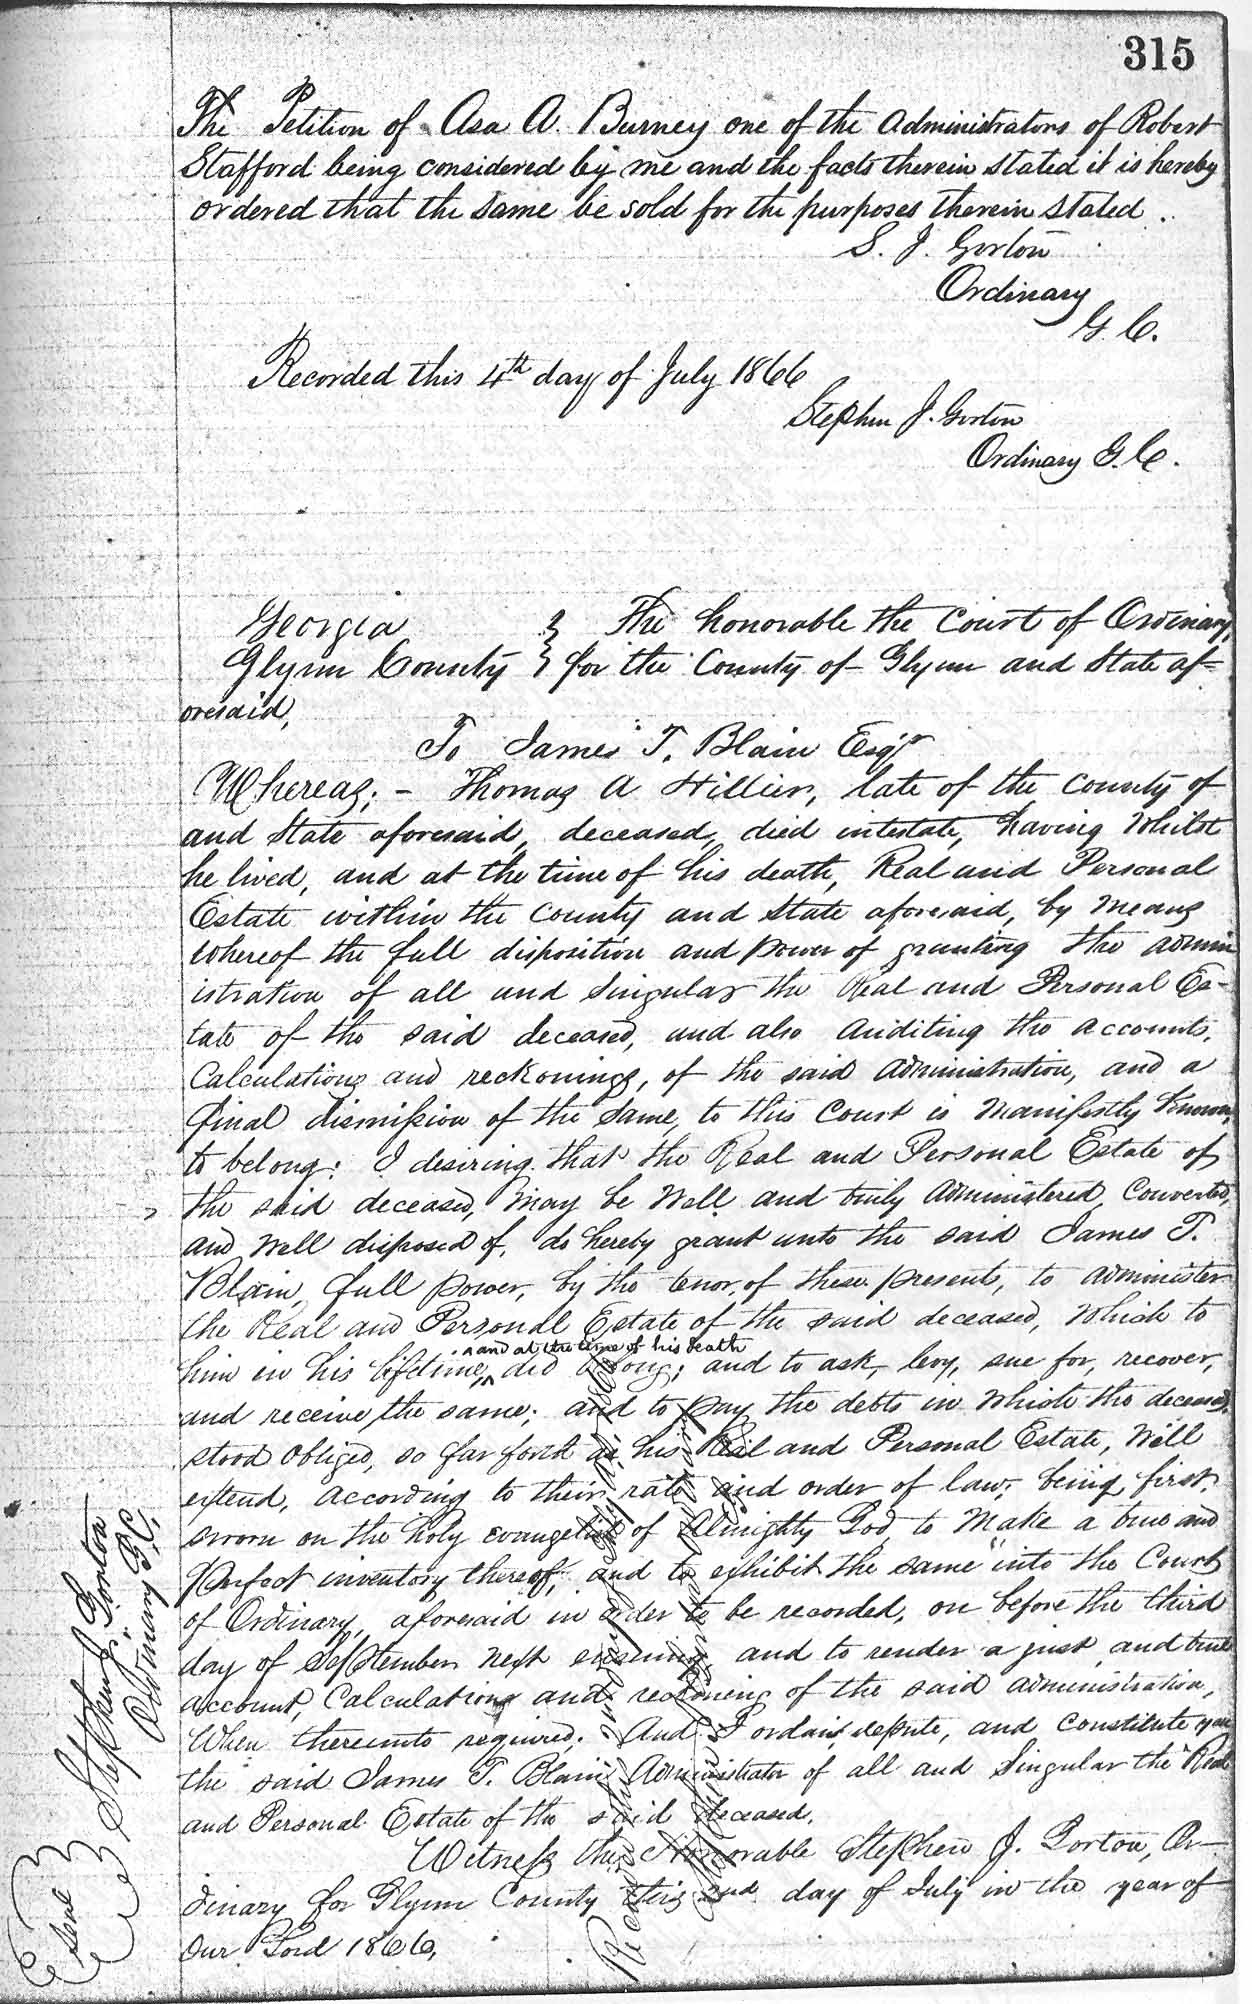 315
The Petition of Asa A. Burney one of the Administrators of Robert
Stafford being considered by me and the facts therein stated it is hereby
ordered that the same be sold for the purposes therein stated.
S. J. Gorton
Ordinary
G. C.
Recorded this 4th day of July 1866
Stephen J. Gorton
Ordinary G. C.
Georgia } The honorable the Court of Ordinary,
Glynn County } for the County of Glynn and State af-
oresaid,
To James T. Blain Esqr
Whereas; - Thomas A Hillier, late of the County of
and State aforesaid, deceased, died intestate, having Whilst
he lived, and at the time of his death, Real and Personal
Estate within the County and State aforesaid, by Means
whereof the full disposition and power of granting the admin
istration of all and Singular the Real and Personal Es-
tate of the said deceased, and also Auditing the accounts,
Calculations and reckonings, of the said Administration, and a
final dismission of the Same, to this Court is Manifestly Known,
to belong: I desiring that the Real and Personal Estate of
the said deceased, May be Well and truly Administered, Converted,
and Well disposed of, do hereby grant unto the said James T.
Blain, full power, by the tenor, of these presents, to Administer
the Real and Personal Estate of the said deceased, Which to
him in his lifetime, ^and at the time of his death did belong; and to ask, levy, sue for, recover,
and receive the same; and to pay the debts in Which the deceased,
stood Obliged, so far forth as his Real and Personal Estate, Will
extend, According to their rate and order of law; being first
sworn on the Holy evangelist of Almighty God, to Make a true and
Perfect inventory thereof, and to exhibit the same into the Court
of Ordinary, aforesaid in order to be recorded, on before the third
day of September next ensuing, and to render a just and true
account, Calculations and reckoning of the said administration,
When thereunto required. And I ordain, depute, and Constitute you
the said James T. Blain Administrator of all and Singular the Real
and Personal Estate of the said deceased.
Witness the Honorable Stephen J. Gorton, Or-
dinary for Glynn County this 2nd day of July in the year of
Our Lord 1866,
Stephen J. Gorton
Ordinary G.C.
Recorded this
Stephen J. Gorton